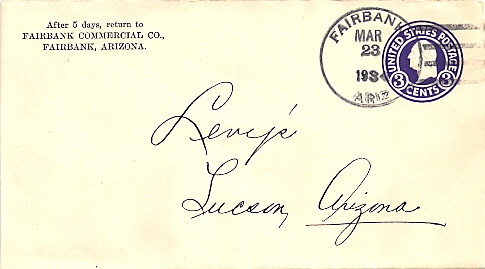 After 5 days, return to
FAIRBANK COMMERCIAL CO.,
FAIRBANK, ARIZONA.
FAIRBANK
MAR
23
1934
ARIZ
UNITED STATES POSTAGE
3 CENTS 3
Levy's
Tucson, Arizona